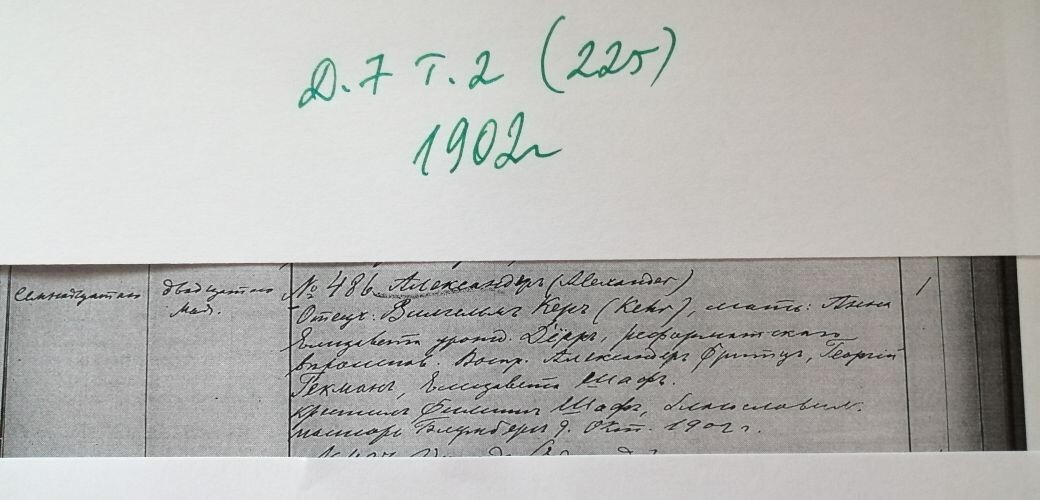 Д.7 т.2 (225)
1902г
Семнадцатаго
двадцатаго
Мая.
№ 486 Александръ (Alexander)
Отецъ: Вильгельмъ Керъ (Kehr), мать: Анна
Елизавета урожд. Дёрръ, реформатскаго
вѣроиспов. Воспр. Александръ Фритцъ, Георгій
Гекманъ, Елизавета Шафъ.
Крестилъ Филиппъ Шафъ, благословилъ
пасторъ Блумбергъ 9. Окт. 1902 г.
1